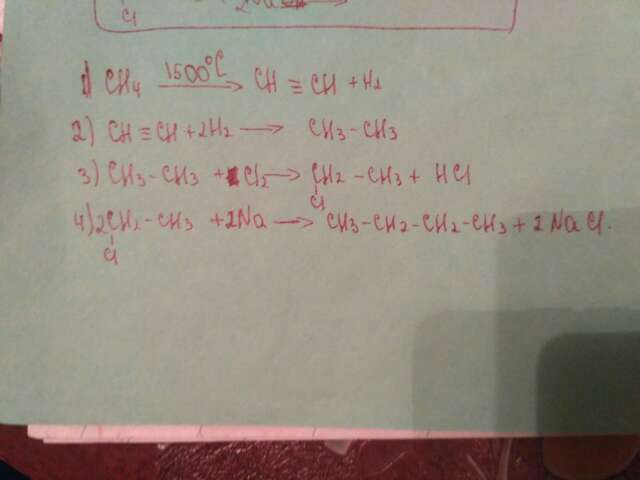 Cl
1) CH4 1500°C → CH ≡ CH + H2
2) CH ≡ CH + 2H2 → CH3 - CH3
3) CH3 - CH3 + Cl2 → CH2 - CH3 + HCl
Cl
4) 2CH2 - CH3 + 2Na → CH3 - CH2 - CH2 - CH3 + 2NaCl.
Cl